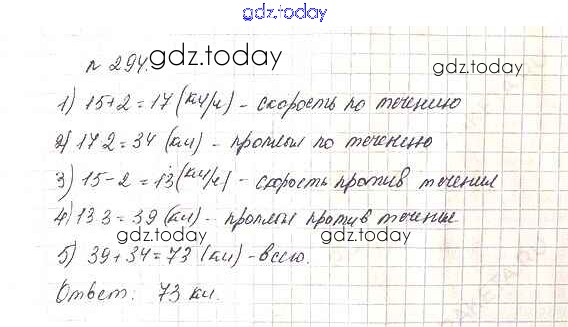 gdz.today
№ 294. gdz.today gdz.today
1) 15+2=17 (км/ч) - скорость по течению
2) 17 2=34 (км) - проплыл по течению
3) 15-2=13 (км/ч) - скорость против течения
4) 13 3=39 (км) - проплыл против течения
gdz.today gdz.today
5) 39+34=73 (км) - всего.
Ответ: 73 км.